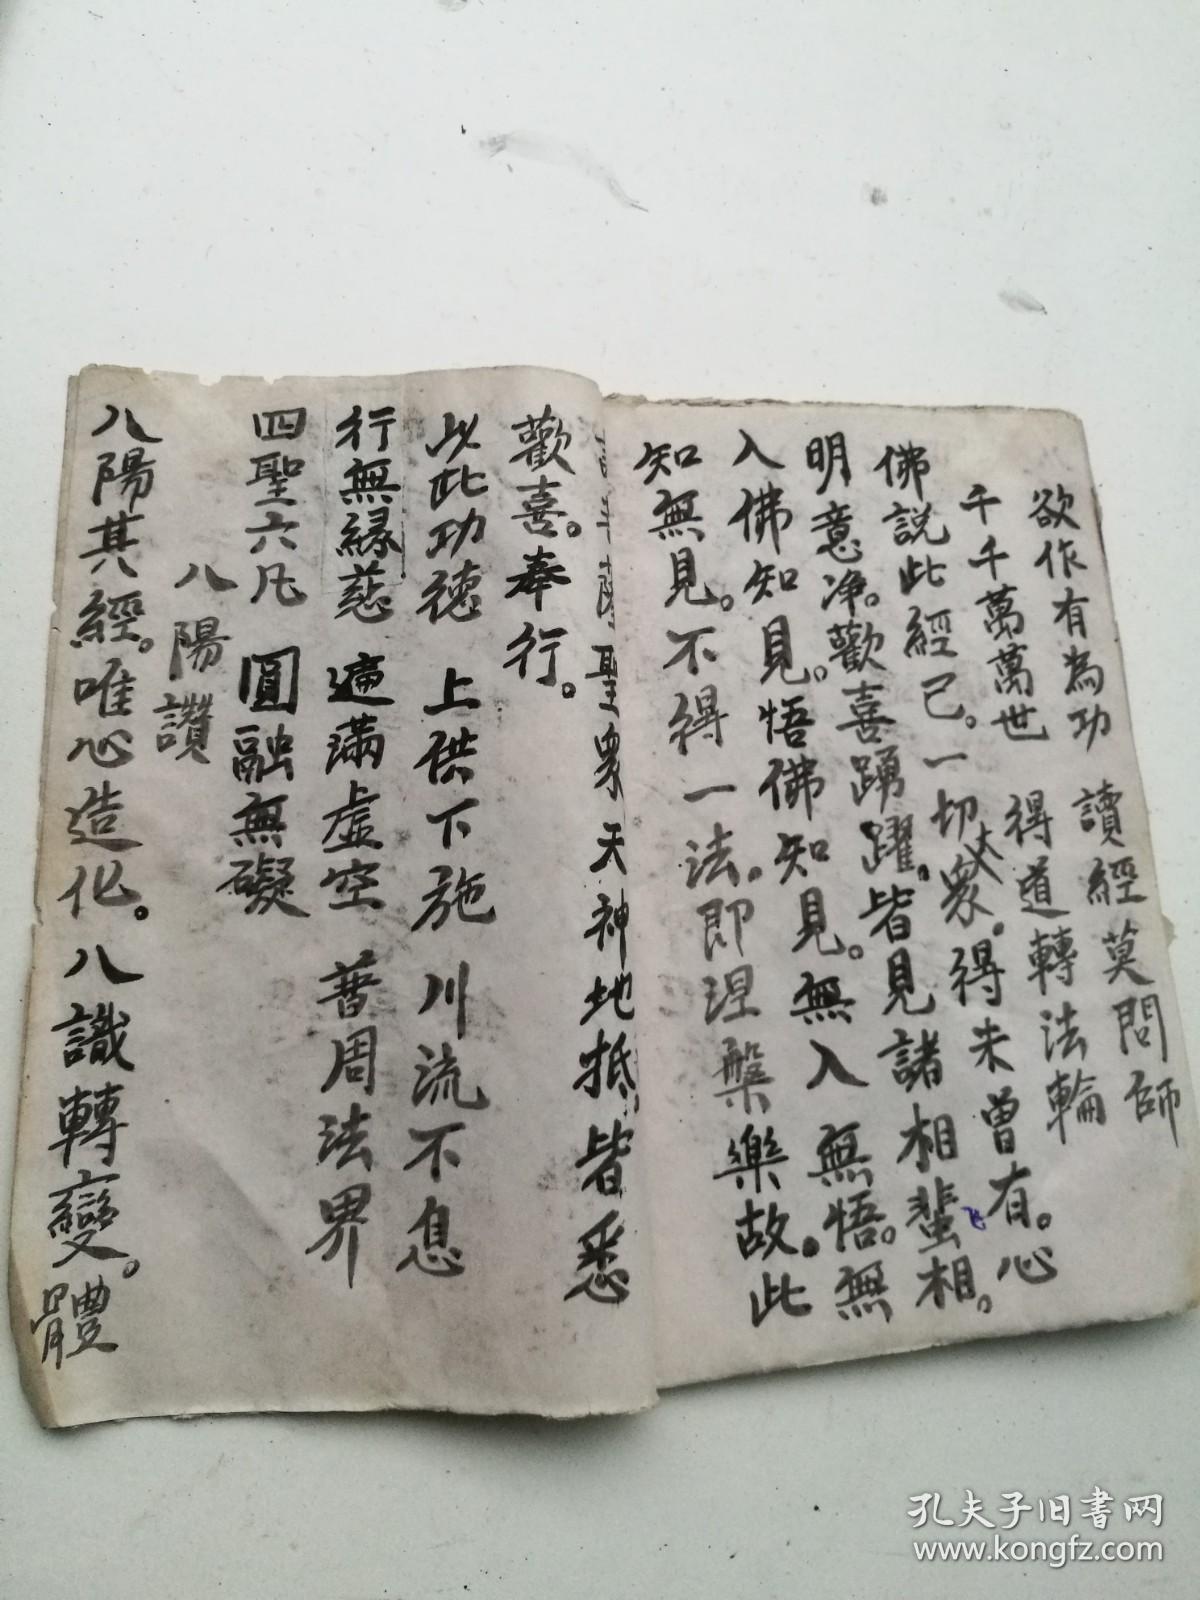 欲作有為功　讀經莫問師
千千萬萬世　得道轉法輪
佛説此經已。一切大衆。得未曾有。心
明意净。歡喜踴躍。皆見諸相蜚飞相。
入佛知見。悟佛知見。無入無悟。無
知無見。不得一法。即涅槃樂故。此
聖衆天神地抵。皆悉
歡喜。奉行。
以此功德　上供下施　川流不息
行無緣慈　遍滿虛空　普周法界
四聖六凡　圓融無礙
八陽讚
八陽其經。唯心造化。八識轉變。體
孔夫子旧书网
www.kongfz.com